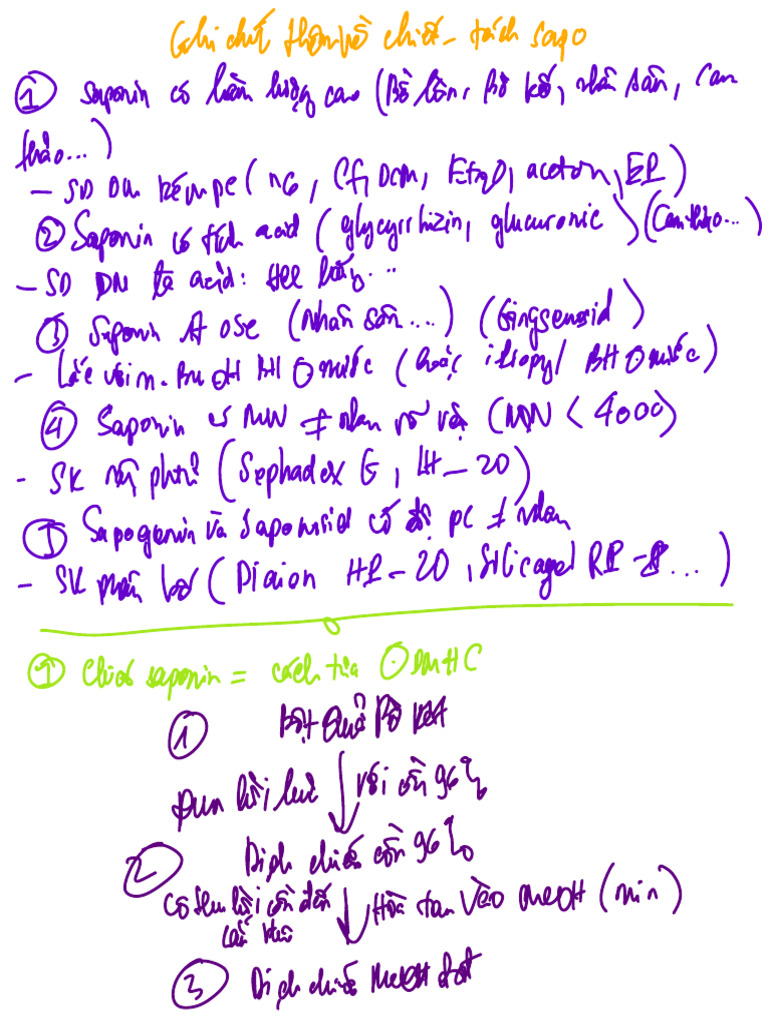 Ghi chú thêm về chiết - tách sapo
① Saponin có hàm lượng cao (Bồ hòn, Bồ kết, nhân sâm, Cam
thảo...)
- SD DM kém pc (n6, Cf, DCM, Et₂O, aceton, EP)
② Saponin có tính acid (glycyrrhizin, glucuronic) (Cam thảo...)
- SD DN là acid: HCl loãng...
③ Saponin ose (Nhân sâm...) (Gingsenosid)
- Lắc với n-BuOH BH nước (hoặc isopyl BH nước)
④ Saponin có MW ≠ nhau rõ rệt (MW < 4000)
- SK rây phtử (Sephadex G, LH-20)
⑤ Sapogenin và Saponosid có độ pc ≠ nhau
- SK phân bố (Diaion HP-20, Silicagel RP-8...)
① Chiết saponin = cách tủa DMHC
① Bột Quả Bồ Kết
Đun hồi lưu với cồn 96%
② Dịch chiết cồn 96%
Cô thu hồi cồn đến Hòa tan vào MeOH (min)
cắn khô
③ Dịch chiết MeOH